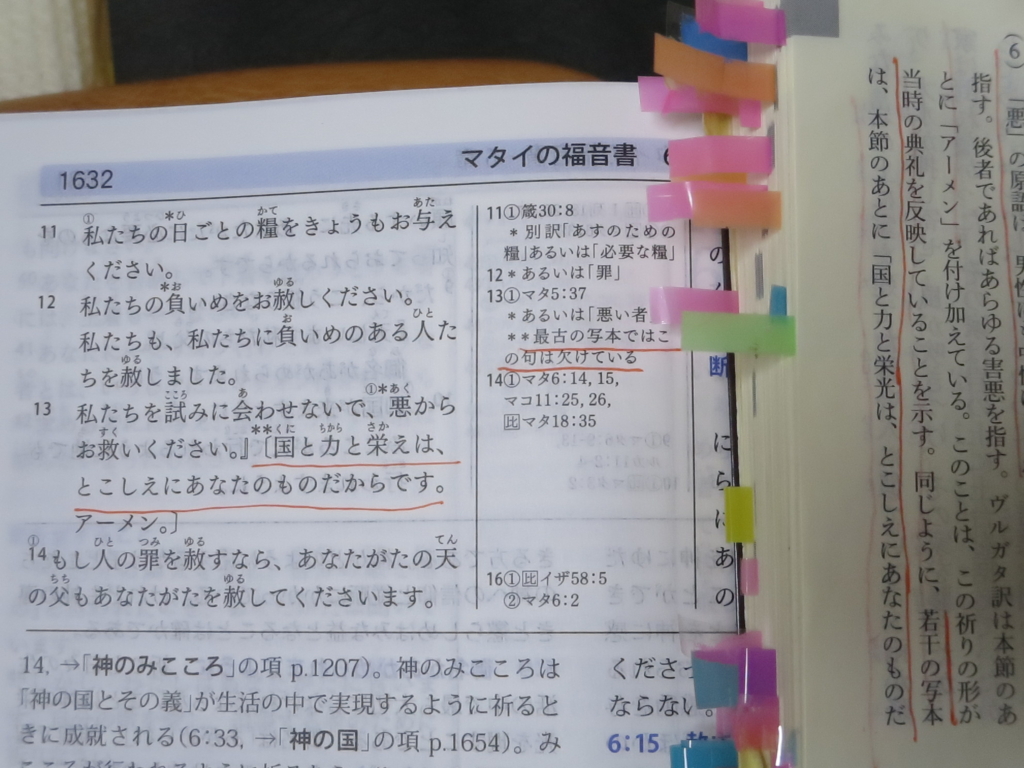 1632
マタイの福音書 6
11 ①私たちの*日ごとの糧をきょうもお与え
ください。
12 私たちの*負いめをお赦しください。
私たちも、私たちに負いめのある人た
ちを赦しました。
13 私たちを試みに会わせないで、①*悪から
お救いください。』〔**国と力と栄えは、
とこしえにあなたのものだからです。
アーメン。〕
①14 もし人の罪を赦すなら、あなたがたの天
の父もあなたがたを赦してくださいます。
11①箴30:8
*別訳「あすのための
糧」あるいは「必要な糧」
12*あるいは「罪」
13①マタ5:37
*あるいは「悪い者」
**最古の写本ではこ
の句は欠けている
14①マタ6:14, 15,
マコ11:25, 26,
比マタ18:35
16①比イザ58:5
②マタ6:2
14, →「神のみこころ」の項 p.1207)。神のみこころは
「神の国とその義」が生活の中で実現するように祈ると
きに成就される(6:33, →「神の国」の項 p.1654)。み
くださ
ならない。
6:15
の
断
に
ら
は
あ
の
(6)「悪」の原語は、男性
指す。後者であればあらゆる害悪を指す。ヴルガタ訳は本節のあ
とに「アーメン」を付け加えている。このことは、この祈りの形が
当時の典礼を反映していることを示す。同じように、若干の写本
は、本節のあとに「国と力と栄光は、とこしえにあなたのものだ